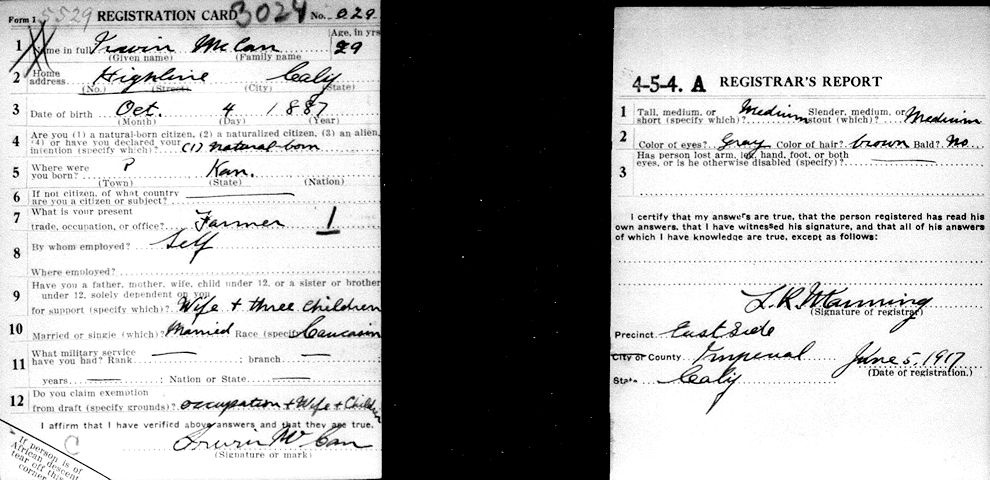 Form 1 5529 REGISTRATION CARD 3024 No. 029
1 Name in full Irwin McCan Age, in yrs 29
(Given name) (Family name)
2 Home address Highline Caly
(No.) (Street) (City) (State)
3 Date of birth Oct. 4 1887
(Month) (Day) (Year)
4 Are you (1) a natural-born citizen, (2) a naturalized citizen, (3) an alien,
(4) or have you declared your
intention (specify which)? (1) natural born
5 Where were you born? ? Kan.
(Town) (State) (Nation)
6 If not citizen, of what country
are you a citizen or subject?
7 What is your present
trade, occupation, or office? Farmer 1
8 By whom employed? Self
Where employed?
9 Have you a father, mother, wife, child under 12, or a sister or brother
under 12, solely dependent on you
for support (specify which)? Wife + three children
10 Married or single (which) Married Race (specify Caucasin
11 What military service
have you had? Rank ; branch
years ; Nation or State
12 Do you claim exemption
from draft (specify grounds)? occupation + Wife + Children
I affirm that I have verified above answers and that they are true.
C Irwin McCan
(Signature or mark)
If person is of
African descent
tear off this
corner
4-5-4. A REGISTRAR'S REPORT
1 Tall, medium, or short (specify which)? Medium Slender, medium, or stout (which)? Medium
2 Color of eyes? Gray Color of hair? brown Bald? No
3 Has person lost arm, leg, hand, foot, or both
eyes, or is he otherwise disabled (specify)?
I certify that my answers are true, that the person registered has read his
own answers, that I have witnessed his signature, and that all of his answers
of which I have knowledge are true, except as follows:
L. R. Manning
(Signature of registrar)
Precinct East Side
City or County Imperial June 5, 1917
State Caly (Date of registration.)